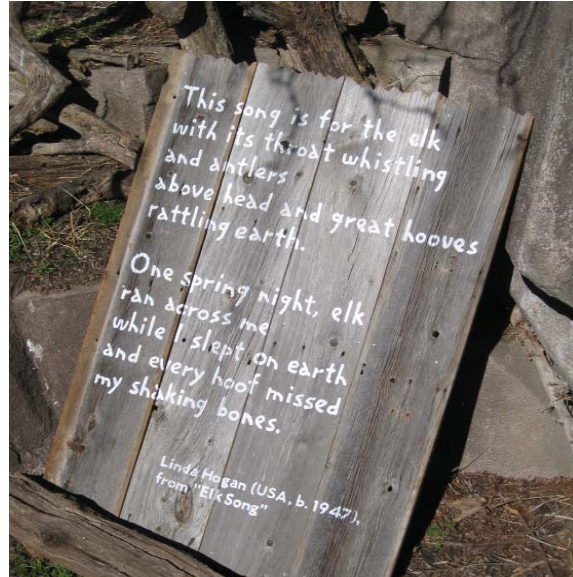 This song is for the elk
with its throat whistling
and antlers
above head and great hooves
rattling earth.
One spring night, elk
ran across me
while I slept on earth
and every hoof missed
my shaking bones.
Linda Hogan (USA, b. 1947),
from "Elk Song"